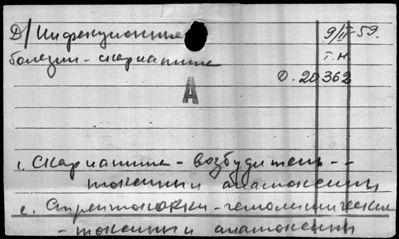 Д/ Инфекционные 9/II-59.
болезни - скарлатина т.н.
О. 20362
А
1. Скарлатина - возбудитель -
токсины и анатоксины
2. Стрептококки - гемолитические
- токсины и анатоксины